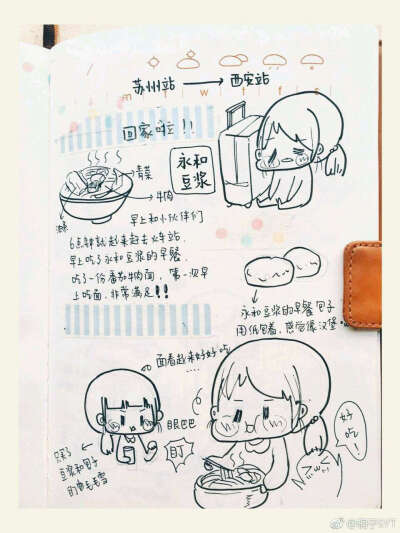 苏州站 → 西安站
m w t f s
回家啦!!
永和
豆浆
青菜
牛肉
早上和小伙伴们
6点钟就起来赶去火车站
早上吃了永和豆浆的早餐
吃了一份番茄牛肉面,第一次早
上吃面,非常满足!!
永和豆浆的早餐包子
用纸包着,感觉像汉堡
面看起来好好吃
眼巴巴
盯
好
吃!
买了
豆浆和包子
的黄毛雪